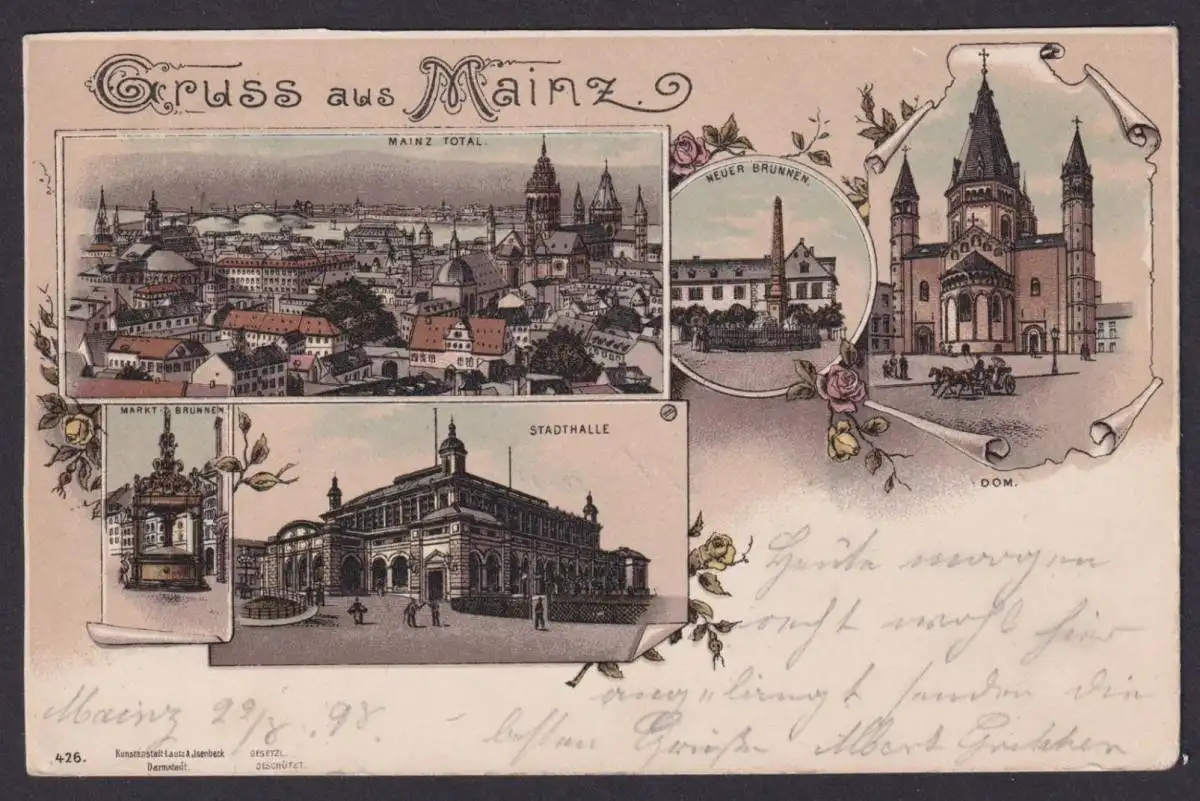 Gruss aus Mainz.
MAINZ TOTAL.
NEUER BRUNNEN.
MARKT-BRUNNEN
STADTHALLE
DOM.
Heute morgen
recht wohl hier
angelangt senden die
besten Grüße Albert
Mainz 29/8. 98.
426.
Kunstanstalt Lautz & Jsenbeck
Darmstadt.
GESETZL.
GESCHÜTZT.